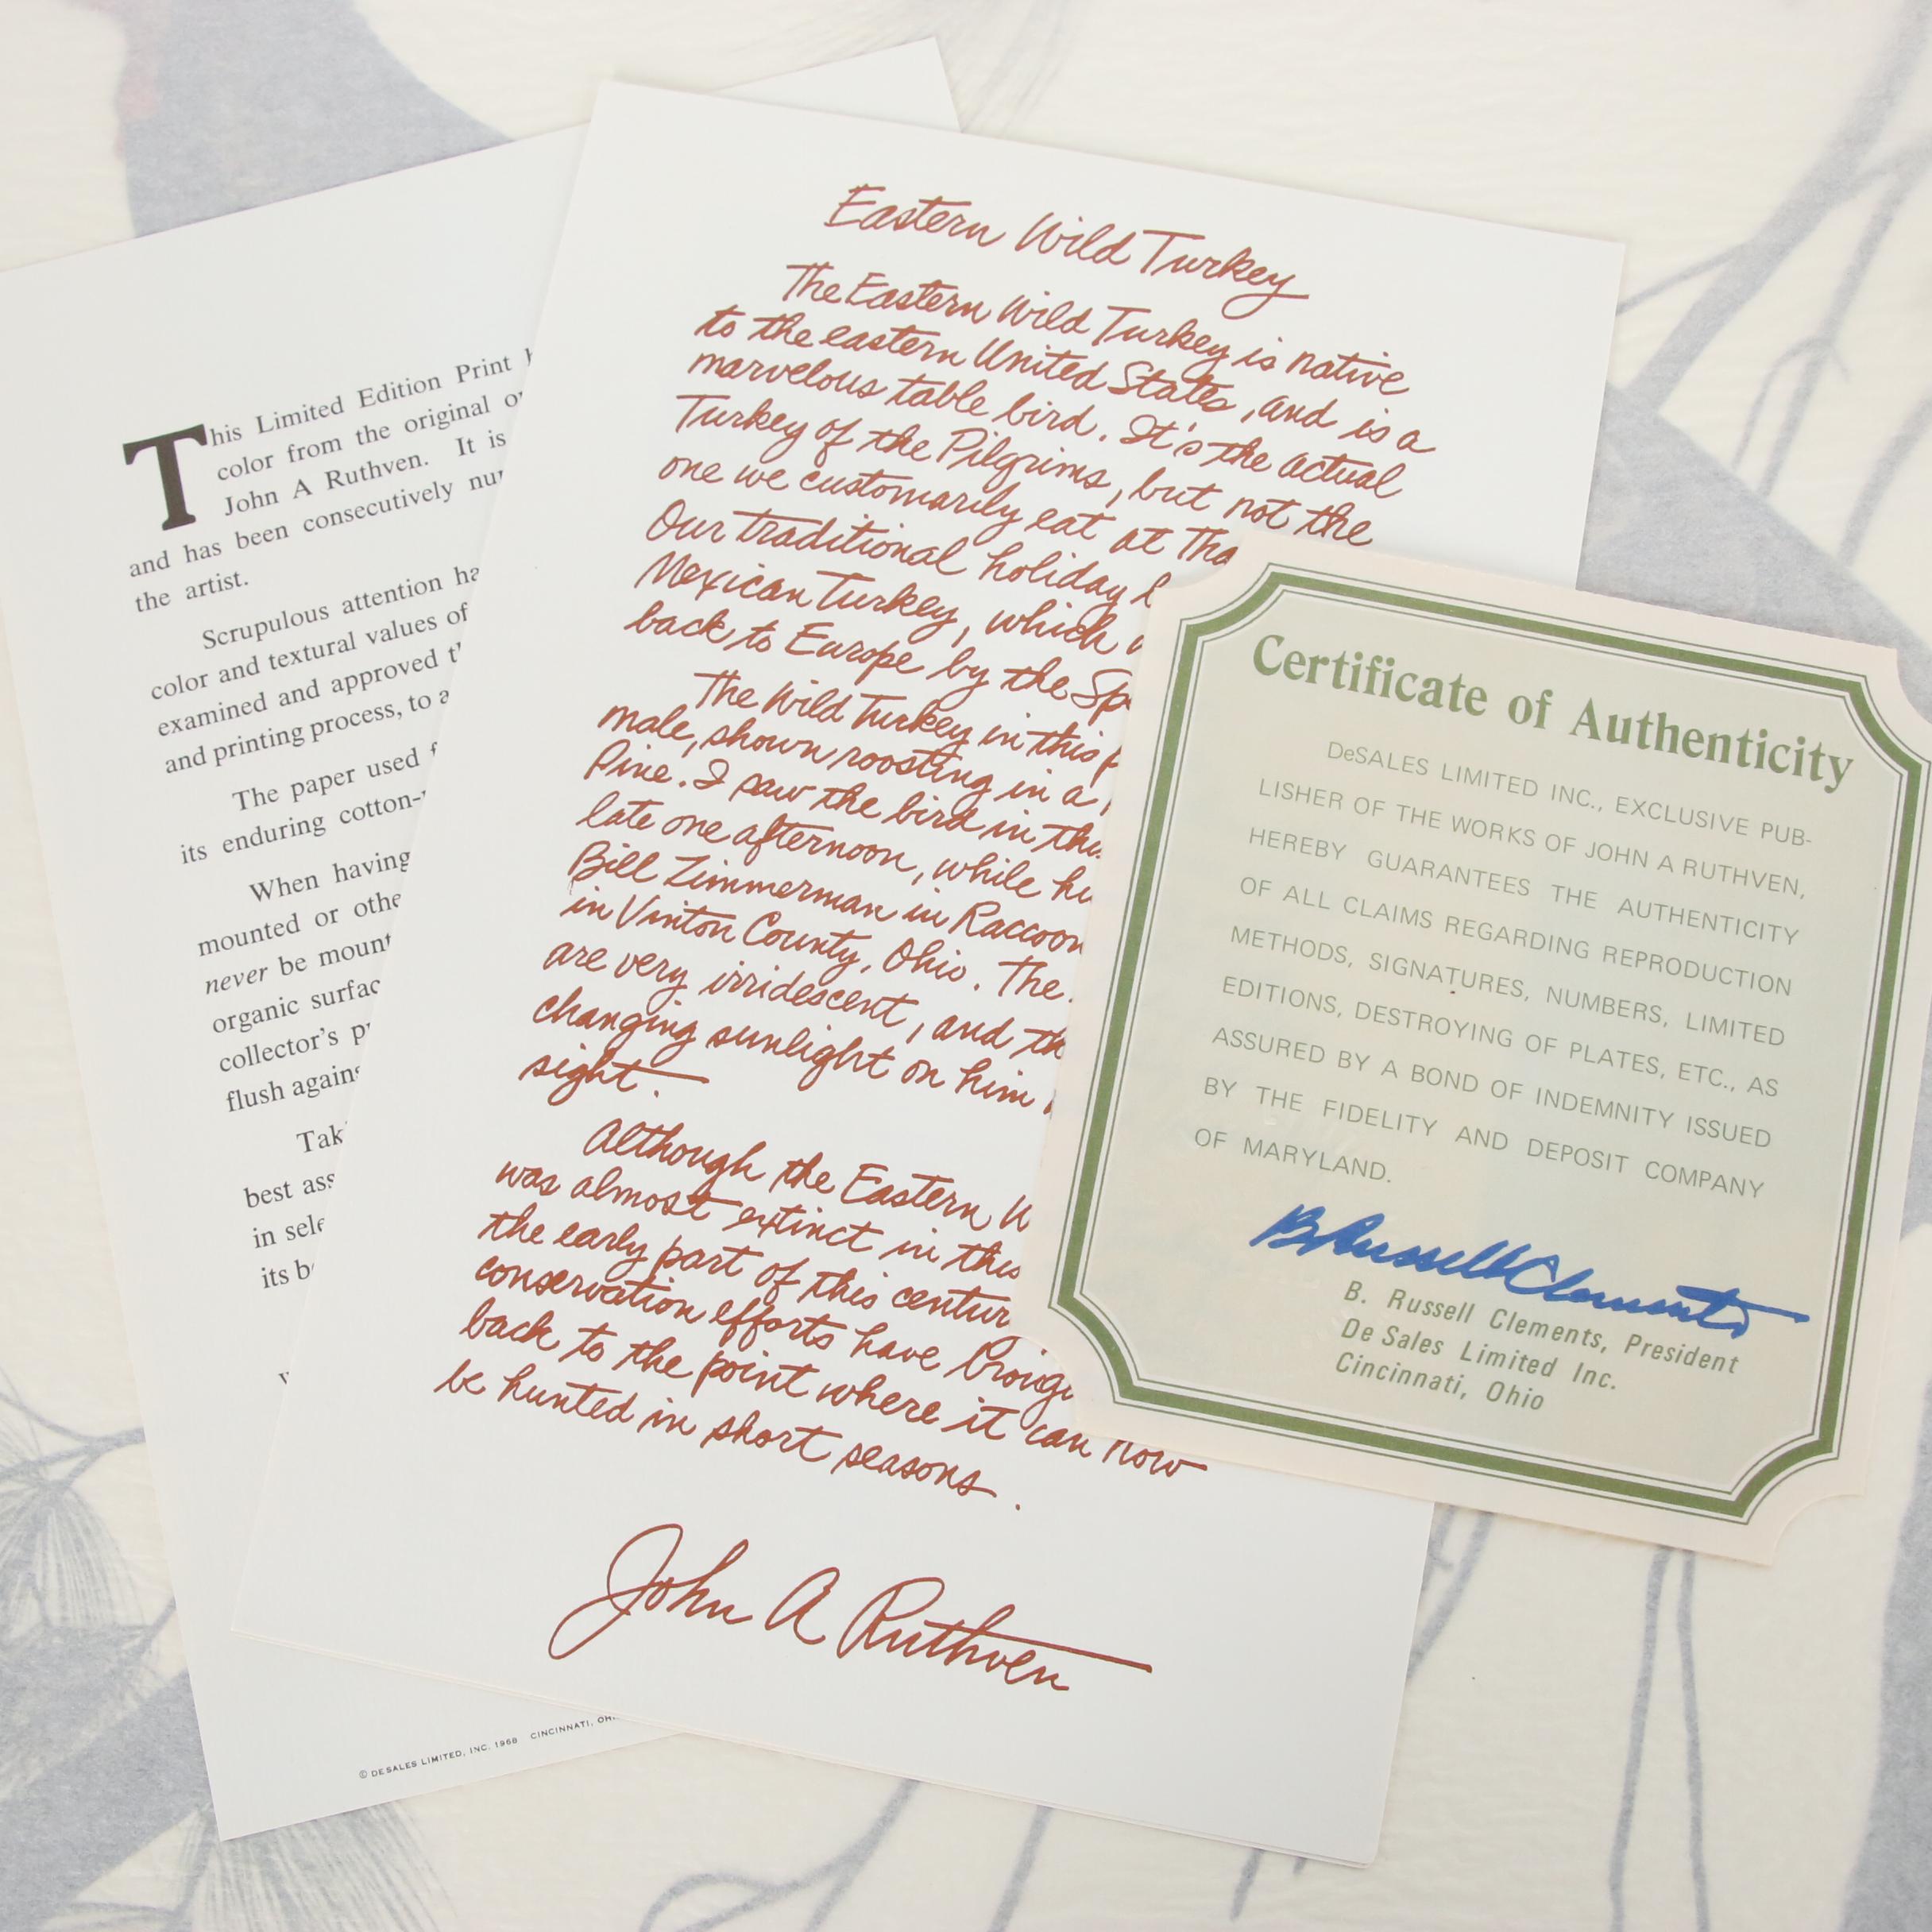 This Limited Edition Print
color from the original
John A Ruthven. It is
and has been consecutively
the artist.
Scrupulous attention
color and textural values of
examined and approved
and printing process, to a
The paper used
its enduring cotton-
When having
mounted or
never be
organic
collector's
flush
best
in
its
© DESALES LIMITED, INC. 1968 CINCINNATI,
Eastern Wild Turkey
The Eastern Wild Turkey is native
to the eastern United States, and is a
marvelous table bird. It's the actual
Turkey of the Pilgrims, but not the
one we customarily eat at
Our traditional holiday
Mexican Turkey, which
back to Europe by the
The Wild Turkey in this
male, shown roosting in a
Pine. I saw the bird in
late one afternoon, while
Bill Zimmerman in Raccoon
in Vinton County, Ohio. The
are very irridescent, and
changing sunlight on him
sight.
Although the Eastern
was almost extinct in this
the early part of this
conservation efforts have
back to the point where it can now
be hunted in short seasons.
John A Ruthven
Certificate of Authenticity
DeSALES LIMITED INC., EXCLUSIVE PUB-
LISHER OF THE WORKS OF JOHN A RUTHVEN,
HEREBY GUARANTEES THE AUTHENTICITY
OF ALL CLAIMS REGARDING REPRODUCTION
METHODS, SIGNATURES, NUMBERS, LIMITED
EDITIONS, DESTROYING OF PLATES, ETC., AS
ASSURED BY A BOND OF INDEMNITY ISSUED
BY THE FIDELITY AND DEPOSIT COMPANY
OF MARYLAND.
B Russell Clements
B. Russell Clements, President
De Sales Limited Inc.
Cincinnati, Ohio